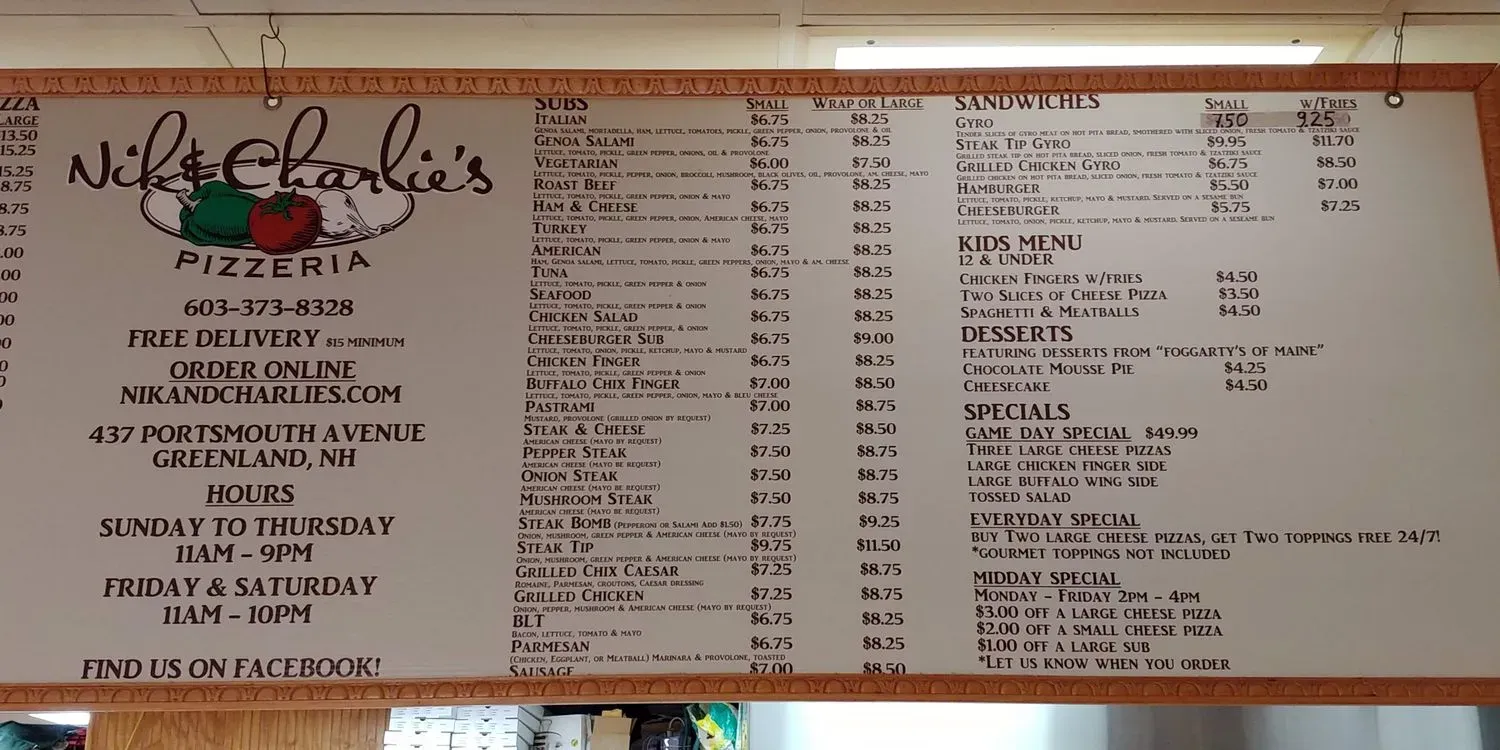 ZZA
LARGE
$13.50
15.25
15.25
8.75
8.75
3.75
.00
00
00
00
0
0
Nik & Charlie's
PIZZERIA
603-373-8328
FREE DELIVERY $15 MINIMUM
ORDER ONLINE
NIKANDCHARLIES.COM
437 PORTSMOUTH AVENUE
GREENLAND, NH
HOURS
SUNDAY TO THURSDAY
11AM – 9PM
FRIDAY & SATURDAY
11AM – 10PM
FIND US ON FACEBOOK!
SUBS SMALL WRAP OR LARGE
ITALIAN $6.75 $8.25
GENOA SALAMI, MORTADELLA, HAM, LETTUCE, TOMATOES, PICKLE, GREEN PEPPER, ONION, PROVOLONE & OIL
GENOA SALAMI $6.75 $8.25
LETTUCE, TOMATO, PICKLE, GREEN PEPPER, ONIONS, OIL & PROVOLONE
VEGETARIAN $6.00 $7.50
LETTUCE, TOMATO, PICKLE, PEPPER, ONION, BROCCOLI, MUSHROOM, BLACK OLIVES, OIL, PROVOLONE, AM. CHEESE, MAYO
ROAST BEEF $6.75 $8.25
LETTUCE, TOMATO, PICKLE, GREEN PEPPER, ONION & MAYO
HAM & CHEESE $6.75 $8.25
LETTUCE, TOMATO, PICKLE, GREEN PEPPER, ONION, AMERICAN CHEESE, MAYO
TURKEY $6.75 $8.25
LETTUCE, TOMATO, PICKLE, GREEN PEPPER, ONION & MAYO
AMERICAN $6.75 $8.25
HAM, GENOA SALAMI, LETTUCE, TOMATO, PICKLE, GREEN PEPPERS, ONION, MAYO & AM. CHEESE
TUNA $6.75 $8.25
LETTUCE, TOMATO, PICKLE, GREEN PEPPER & ONION
SEAFOOD $6.75 $8.25
LETTUCE, TOMATO, PICKLE, GREEN PEPPER & ONION
CHICKEN SALAD $6.75 $8.25
LETTUCE, TOMATO, PICKLE, GREEN PEPPER, & ONION
CHEESEBURGER SUB $6.75 $9.00
LETTUCE, TOMATO, ONION, PICKLE, KETCHUP, MAYO & MUSTARD
CHICKEN FINGER $6.75 $8.25
LETTUCE, TOMATO, PICKLE, GREEN PEPPER & ONION
BUFFALO CHIX FINGER $7.00 $8.50
LETTUCE, TOMATO, PICKLE, GREEN PEPPER, ONION, MAYO & BLEU CHEESE
PASTRAMI $7.00 $8.75
MUSTARD, PROVOLONE (GRILLED ONION BY REQUEST)
STEAK & CHEESE $7.25 $8.50
AMERICAN CHEESE (MAYO BY REQUEST)
PEPPER STEAK $7.50 $8.75
AMERICAN CHEESE (MAYO BE REQUEST)
ONION STEAK $7.50 $8.75
AMERICAN CHEESE (MAYO BE REQUEST)
MUSHROOM STEAK $7.50 $8.75
AMERICAN CHEESE (MAYO BE REQUEST)
STEAK BOMB (PEPPERONI OR SALAMI ADD $1.50) $7.75 $9.25
ONION, MUSHROOM, GREEN PEPPER & AMERICAN CHEESE (MAYO BY REQUEST)
STEAK TIP $9.75 $11.50
ONION, MUSHROOM, GREEN PEPPER & AMERICAN CHEESE (MAYO BY REQUEST)
GRILLED CHIX CAESAR $7.25 $8.75
ROMAINE, PARMESAN, CROUTONS, CAESAR DRESSING
GRILLED CHICKEN $7.25 $8.75
ONION, PEPPER, MUSHROOM & AMERICAN CHEESE (MAYO BY REQUEST)
BLT $6.75 $8.25
BACON, LETTUCE, TOMATO & MAYO
PARMESAN $6.75 $8.25
(CHICKEN, EGGPLANT, OR MEATBALL) MARINARA & PROVOLONE, TOASTED
SAUSAGE $7.00 $8.50
SANDWICHES SMALL W/FRIES
GYRO 7.50 9.25
TENDER SLICES OF GYRO MEAT ON HOT PITA BREAD, SMOTHERED WITH SLICED ONION, FRESH TOMATO & TZATZIKI SAUCE
STEAK TIP GYRO $9.95 $11.70
GRILLED STEAK TIP ON HOT PITA BREAD, SLICED ONION, FRESH TOMATO & TZATZIKI SAUCE
GRILLED CHICKEN GYRO $6.75 $8.50
GRILLED CHICKEN ON HOT PITA BREAD, SLICED ONION, FRESH TOMATO & TZATZIKI SAUCE
HAMBURGER $5.50 $7.00
LETTUCE, TOMATO, PICKLE, KETCHUP, MAYO & MUSTARD. SERVED ON A SESAME BUN
CHEESEBURGER $5.75 $7.25
LETTUCE, TOMATO, ONION, PICKLE, KETCHUP, MAYO & MUSTARD. SERVED ON A SESEAME BUN
KIDS MENU
12 & UNDER
CHICKEN FINGERS W/FRIES $4.50
TWO SLICES OF CHEESE PIZZA $3.50
SPAGHETTI & MEATBALLS $4.50
DESSERTS
FEATURING DESSERTS FROM "FOGGARTY'S OF MAINE"
CHOCOLATE MOUSSE PIE $4.25
CHEESECAKE $4.50
SPECIALS
GAME DAY SPECIAL $49.99
THREE LARGE CHEESE PIZZAS
LARGE CHICKEN FINGER SIDE
LARGE BUFFALO WING SIDE
TOSSED SALAD
EVERYDAY SPECIAL
BUY TWO LARGE CHEESE PIZZAS, GET TWO TOPPINGS FREE 24/7!
*GOURMET TOPPINGS NOT INCLUDED
MIDDAY SPECIAL
MONDAY – FRIDAY 2PM – 4PM
$3.00 OFF A LARGE CHEESE PIZZA
$2.00 OFF A SMALL CHEESE PIZZA
$1.00 OFF A LARGE SUB
*LET US KNOW WHEN YOU ORDER